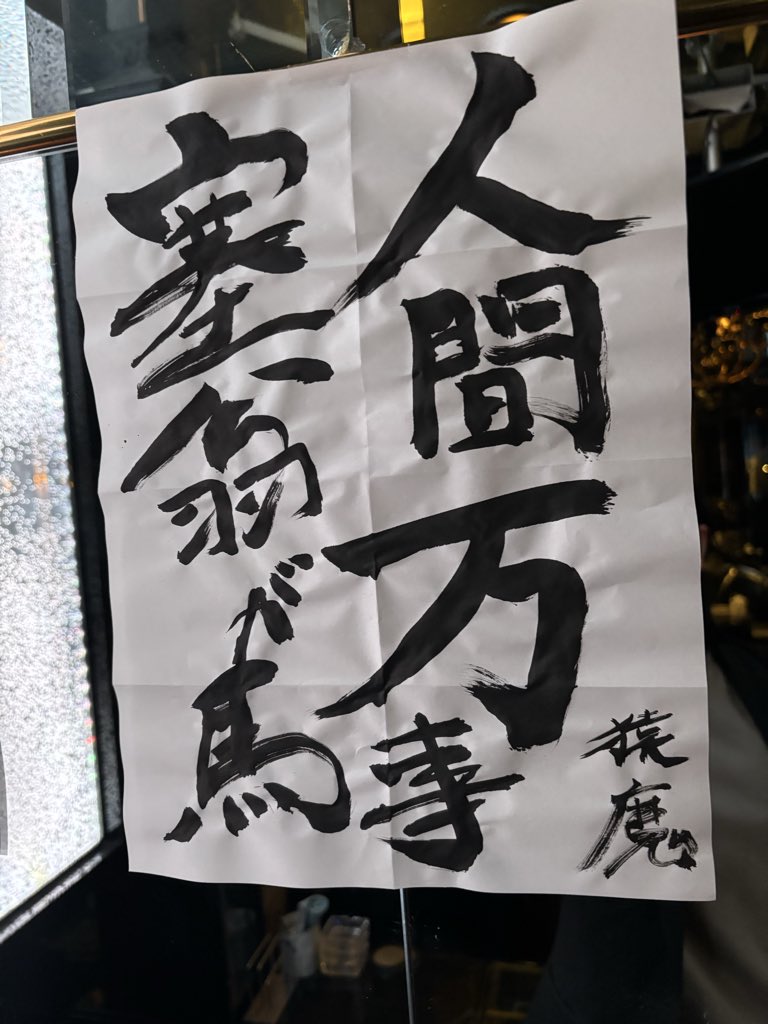 人間万事
塞翁が馬
猿魔